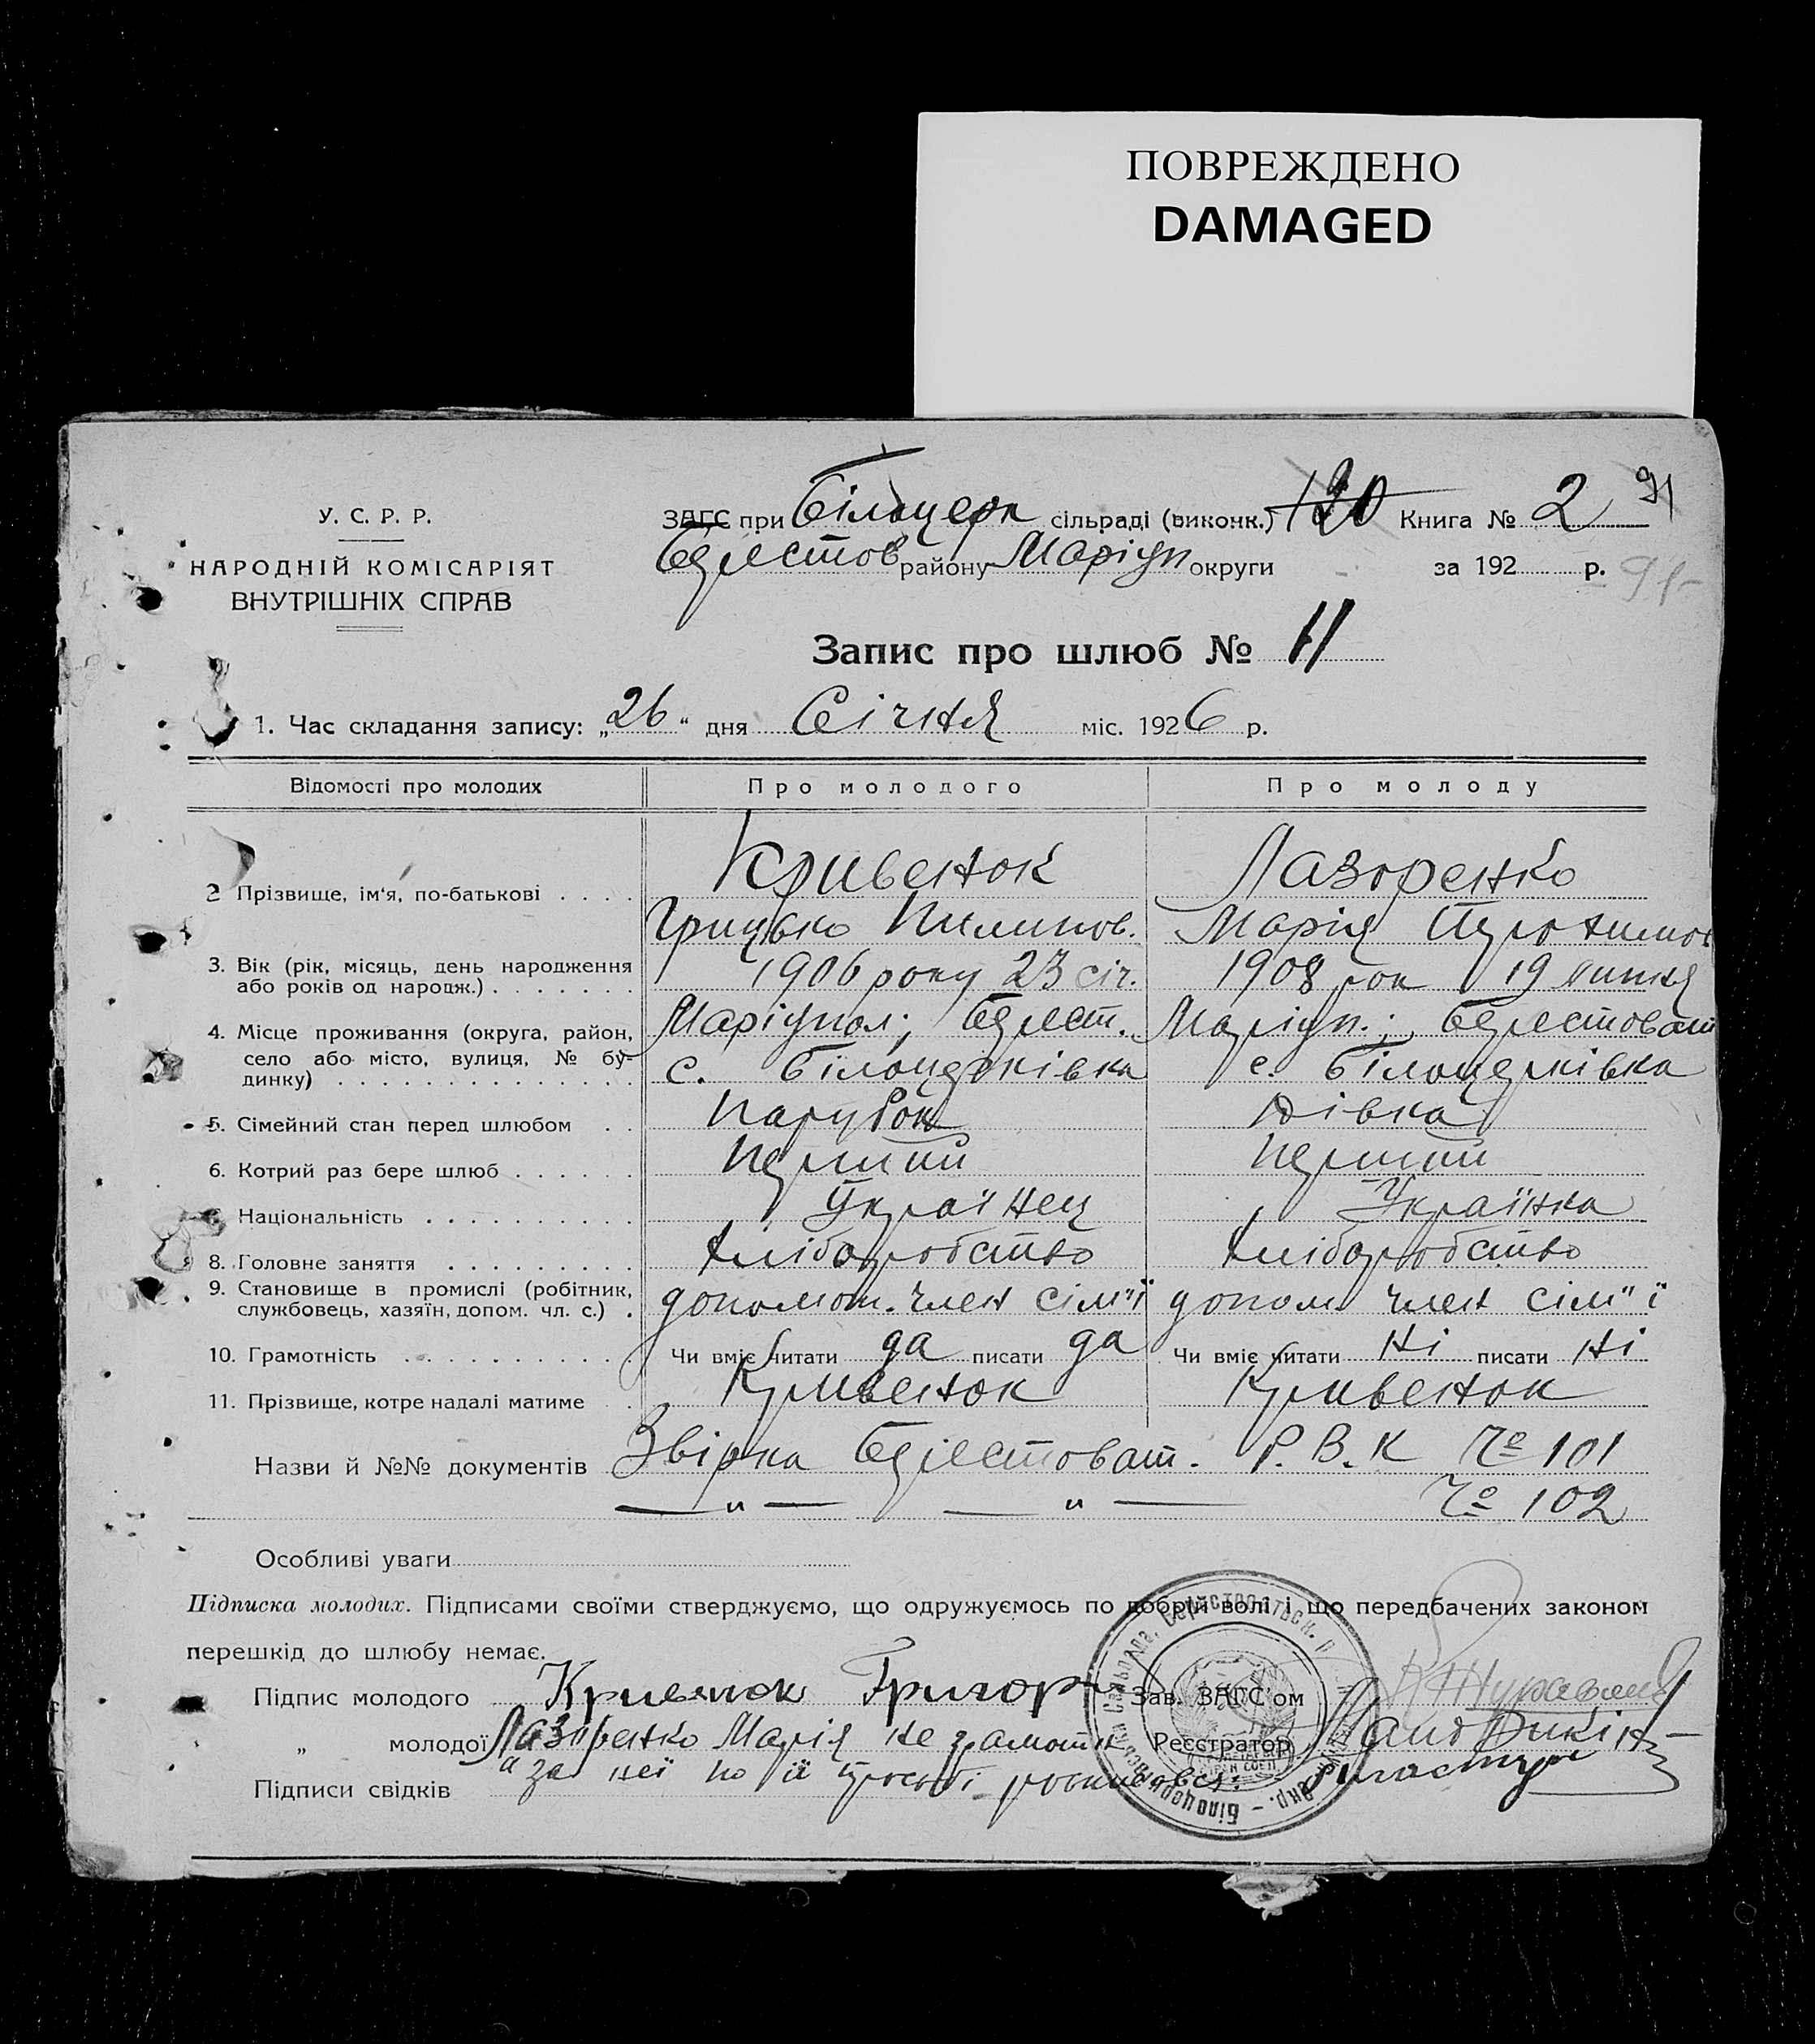 ПОВРЕЖДЕНО
DAMAGED
У. С. Р. Р.
НАРОДНІЙ КОМІСАРІЯТ
ВНУТРІШНІХ СПРАВ
ЗАГС при Білоцерк сільраді (виконк.) 120 Книга № 2 91
Берестов району Маріуп округи за 192 р. 91
Запис про шлюб № 11
1. Час складання запису: „26“ дня Січня міс. 1926 р.
Відомості про молодих Про молодого Про молоду
2 Прізвище, ім'я, по-батькові . . . . Кривенок Лазоренко
Грицько Пилипов. Марія
3. Вік (рік, місяць, день народження або років од народж.) . . . . . . . 1906 року 23 січ. 1908 рок 19 липня
4. Місце проживання (округа, район, село або місто, вулиця, № будинку) . . . . . . . . . . . . . . Маріупол; Берест. Маріуп.; Берестоват
с. Білоцерківка с. Білоцерківка
5. Сімейний стан перед шлюбом . . Парубок Дівка
6. Котрий раз бере шлюб . . . . . . Перший Перший
Національність . . . . . . . . . . Українец Українка
8. Головне заняття . . . . . . . . . Хліборобство Хліборобство
9. Становище в промислі (робітник, службовець, хазяїн, допом. чл. с.) . допомог. член сім"ї допом член сім"ї
10. Грамотність . . . . . . . . . . . Чи вміє читати да писати да Чи вміє читати Ні писати Ні
11. Прізвище, котре надалі матиме . . Кривенок Кривенок
Назви й №№ документів Звірка Берестоват. Р. В. К № 101
— „ — — „ — № 102
Особливі уваги
Підписка молодих. Підписами своїми стверджуємо, що одружуємось по добрій волі і що передбачених законом
перешкід до шлюбу немає.
Підпис молодого Кривенок Григор Зав. ЗАГС'ом
„ молодої Лазоренко Марія не грамотн Реєстратор
Підписи свідків за неї по її просьбі росписався: